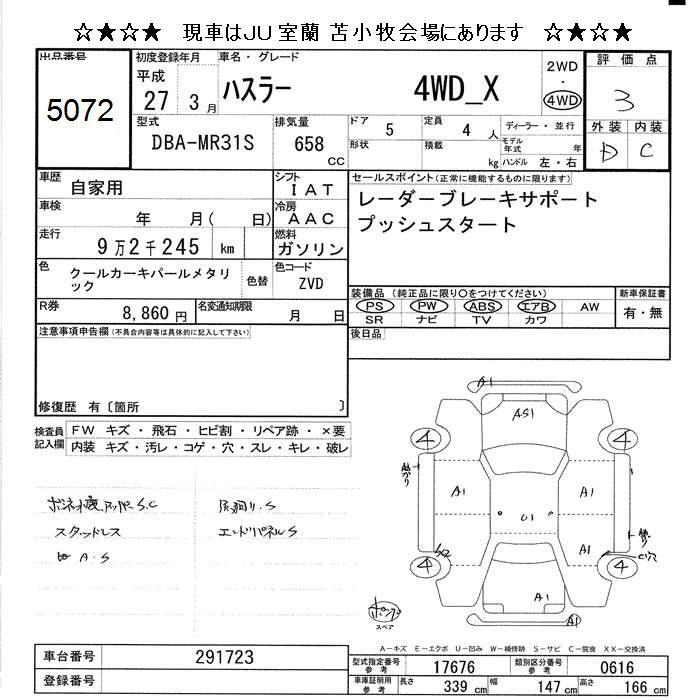 ☆★☆★ 現車はJU室蘭 苫小牧会場にあります ☆★☆★
出品番号
5072
初度登録年月
平成
27 3 月
車名・グレード
ハスラー 4WD_X
2WD
・
4WD
評価点
3
外装 内装
D C
型式
DBA-MR31S
排気量
658
CC
ドア 5
定員 4 人
形状
積載 kg
ディーラー・並行
モデル年式 年
ハンドル 左・右
車歴 自家用
シフト IAT
車検 年 月( 日)
冷房 AAC
走行 9万2千245 km
燃料 ガソリン
色 クールカーキパールメタリック
色替
色コード ZVD
R券 8,860 円
名変通知期限 月 日
セールスポイント(正常に機能するものに限ります)
レーダーブレーキサポート
プッシュスタート
装備品(純正品に限り○をつけてください)
PS PW ABS エアB AW
SR ナビ TV カワ
新車保証書
有・無
後日品
注意事項申告欄(不具合内容等は具体的に記入して下さい)
修復歴 有〔箇所 〕
検査員記入欄
FW キズ・飛石・ヒビ割・リペア跡・×要
内装 キズ・汚レ・コゲ・穴・スレ・キレ・破レ
スタッドレス
A.S
エンドパネルS
A1
AS1
4 4
A1 A1
U1
A1
4 4
A1
A1
スペア
A-キズ E-エクボ U-凹み W-補修跡 S-サビ C-腐食 XX-交換済
車台番号 291723
登録番号
型式指定番号 参考 17676
類別区分番号 参考 0616
車庫証明用 参考
長さ 339 cm 幅 147 cm 高さ 166 cm